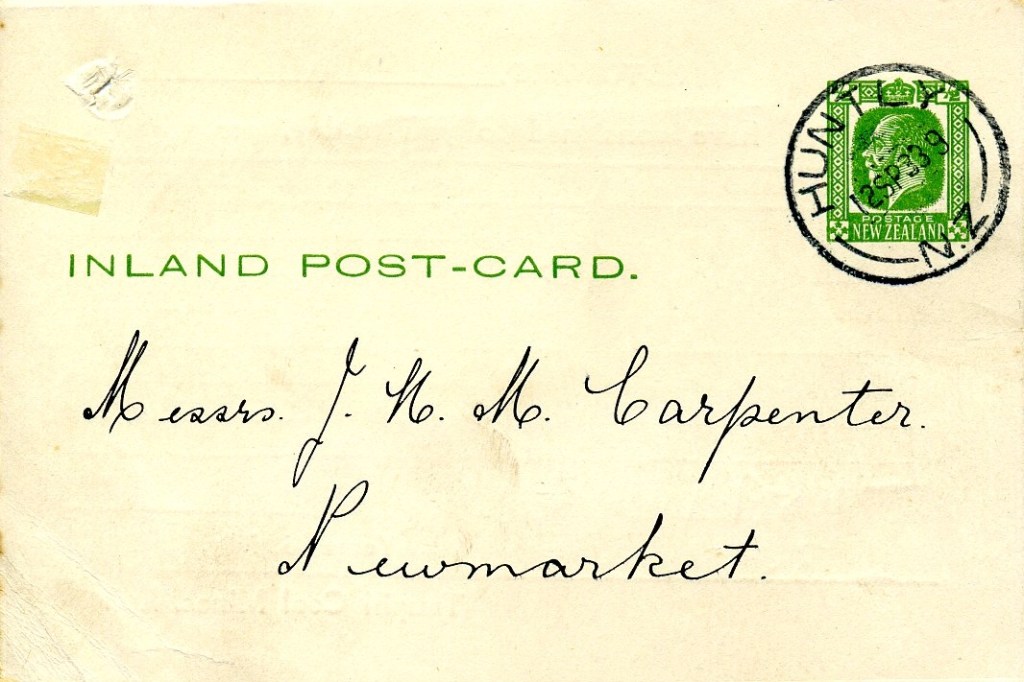 HUNTLY
½
12 SP 33 9
POSTAGE
NEW ZEALAND
N.Z
INLAND POST-CARD.
Messrs. J. H. M. Carpenter.
Newmarket.